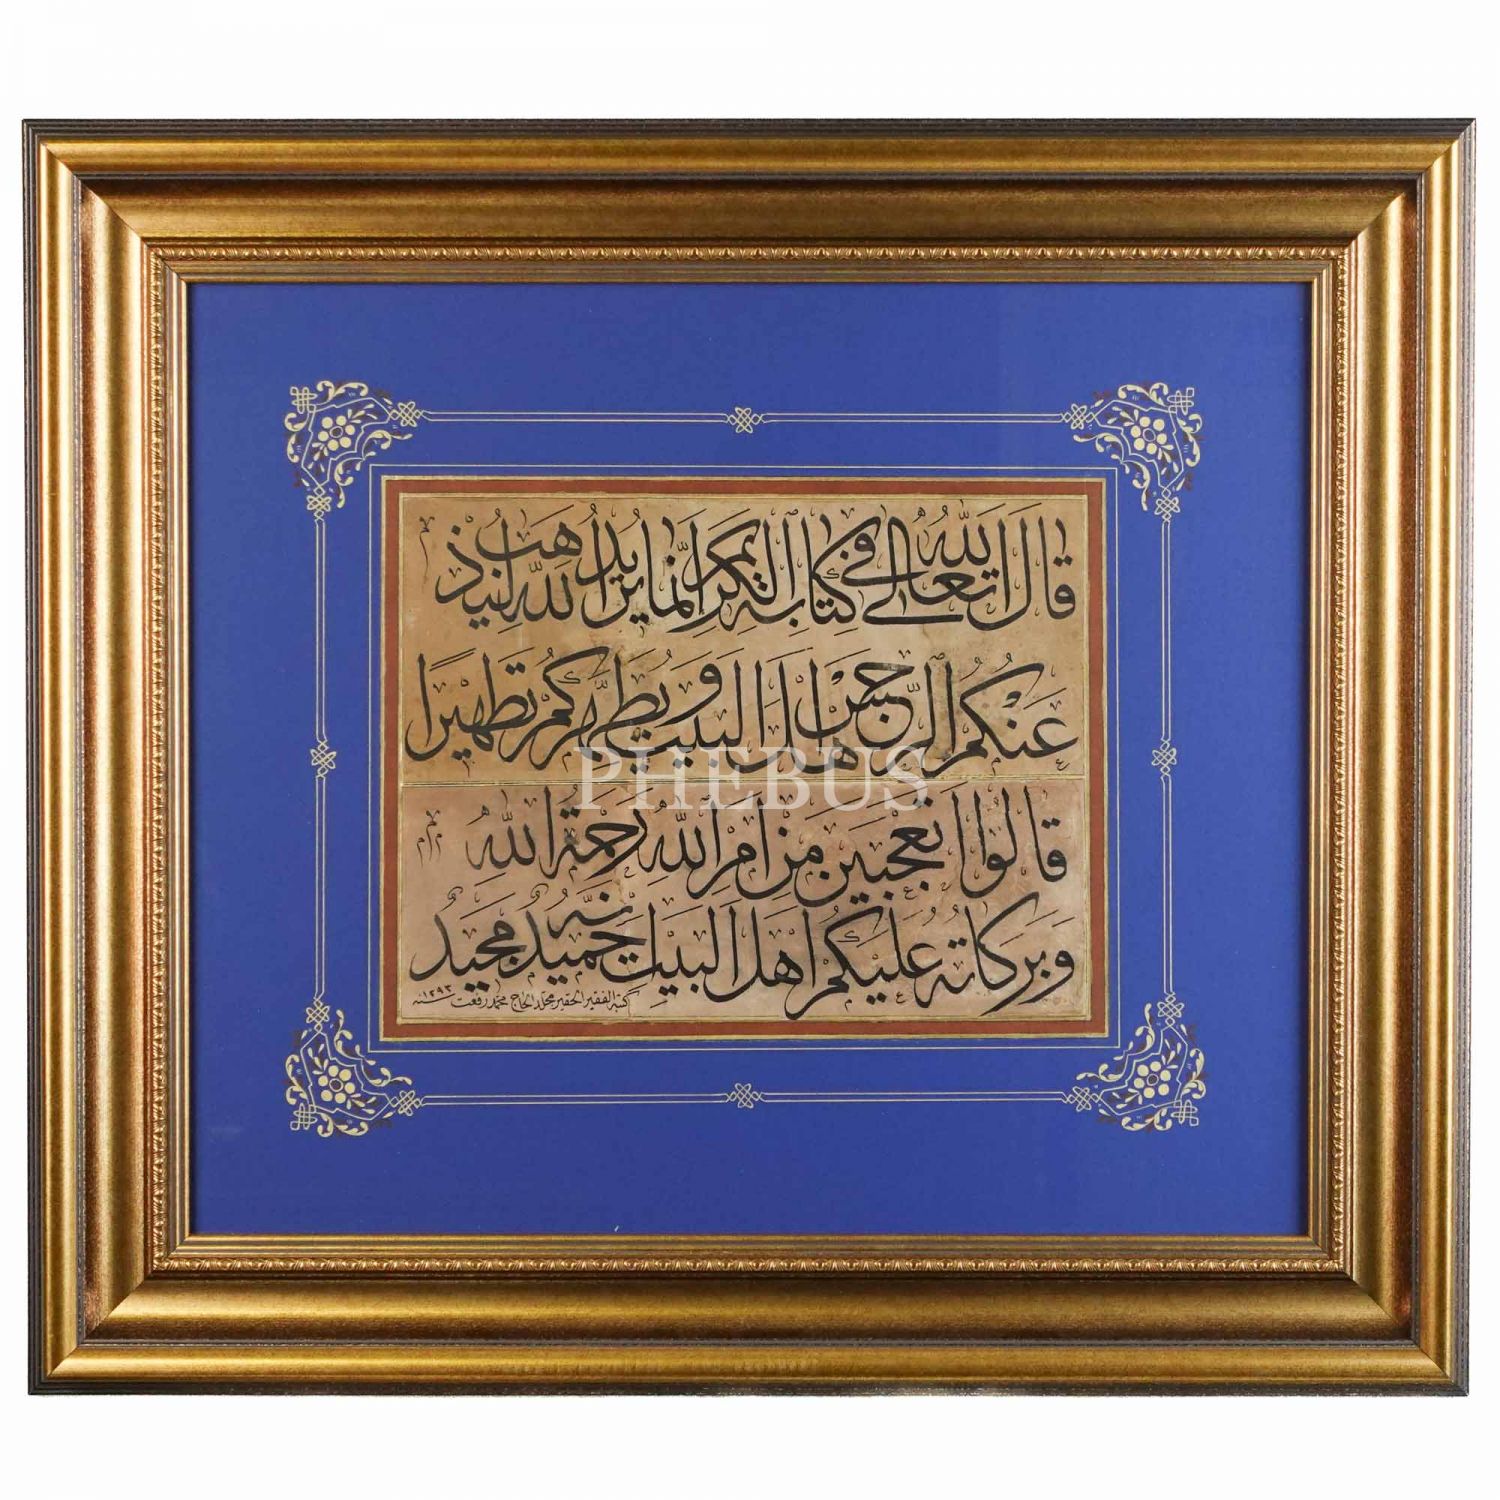 قَالَ اللّٰهُ تَعَالٰى فِى كِتَابِهِ الْكَرِيمِ اِنَّمَا يُرِيدُ اللّٰهُ لِيُذْهِبَ
عَنْكُمُ الرِّجْسَ اَهْلَ الْبَيْتِ وَيُطَهِّرَكُمْ تَطْهِيرًا
قَالُوا اَتَعْجَبِينَ مِنْ اَمْرِ اللّٰهِ رَحْمَةُ اللّٰهِ
وَبَرَكَاتُهُ عَلَيْكُمْ اَهْلَ الْبَيْتِ اِنَّهُ حَمِيدٌ مَجِيدٌ
كتبه الفقير الحقير محمد الحاج محمد رفعت سنه ١٢٩٣
PHEBUS